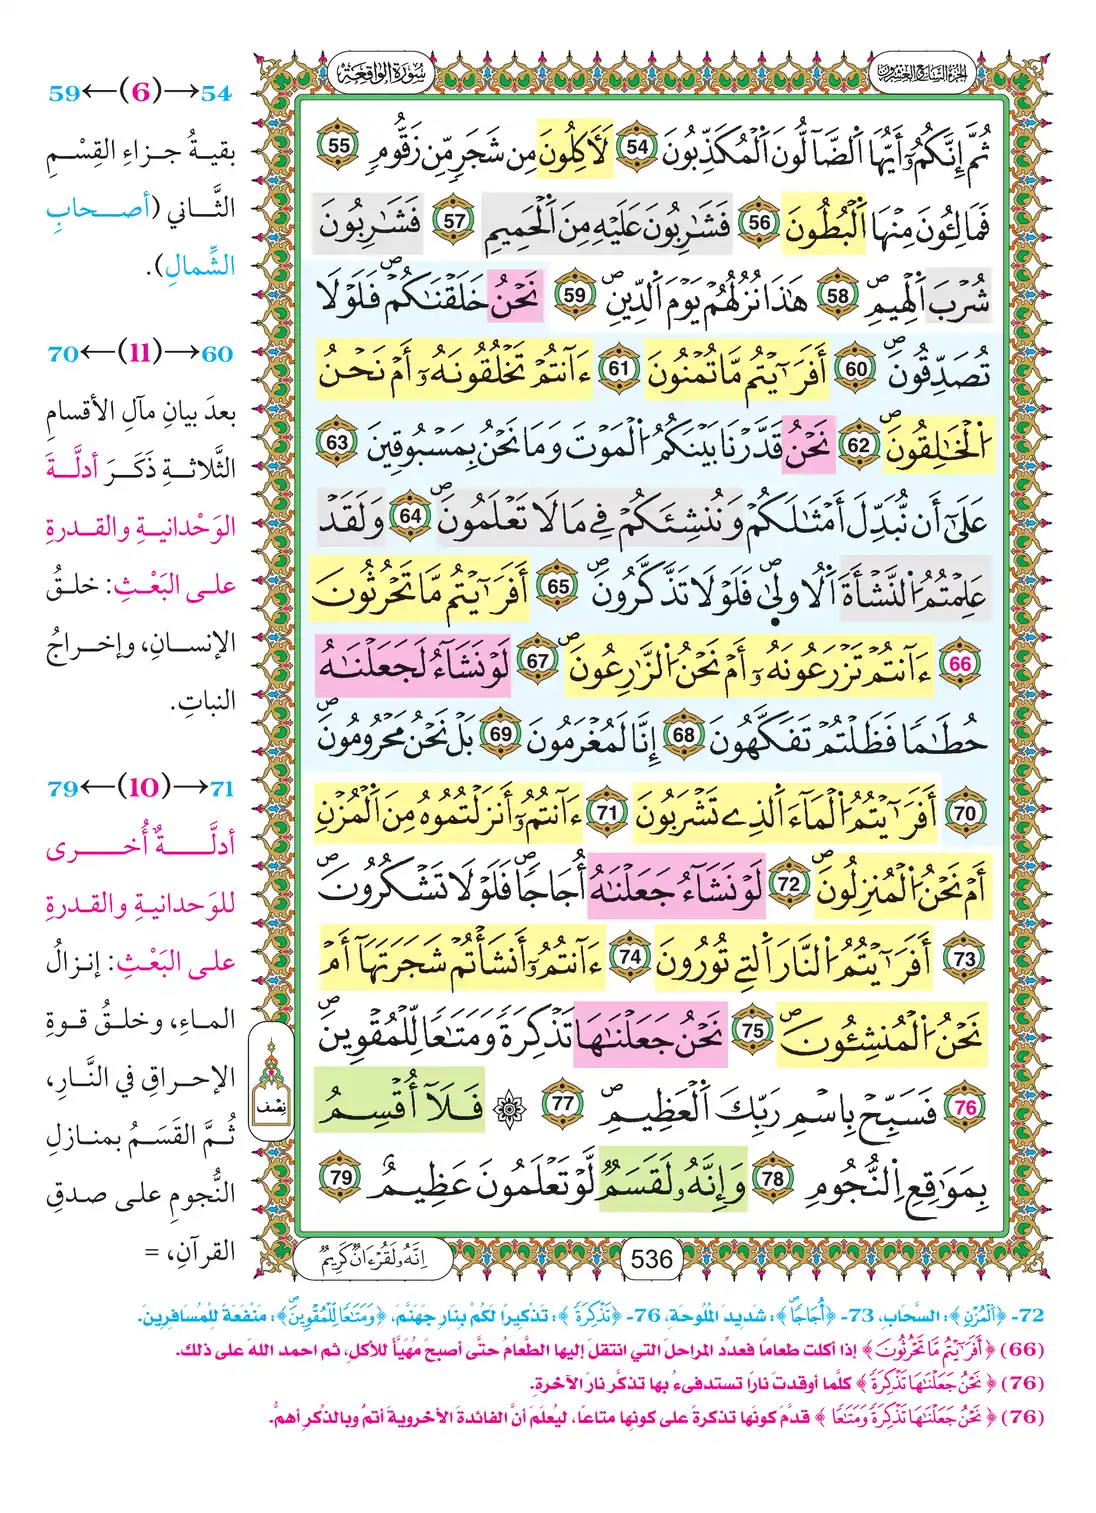 الجزء السابع والعشرون
سورة الواقعة
ثُمَّ إِنَّكُمُۥٓ أَيُّهَا اَ۬لضَّآلُّونَ اَ۬لْمُكَذِّبُونَ 54 لَأٓكِلُونَ مِن شَجَرٖ مِّن زَقُّومٖ 55
فَمَالِـُٔونَ مِنْهَا اَ۬لْبُطُونَ 56 فَشَٰرِبُونَ عَلَيْهِ مِنَ اَ۬لْحَمِيمِ 57 فَشَٰرِبُونَ
شُرْبَ اَ۬لْهِيمِۖ 58 هَٰذَا نُزُلُهُمْ يَوْمَ اَ۬لدِّينِۖ 59 نَحْنُ خَلَقْنَٰكُمْۖ فَلَوْلَا
تُصَدِّقُونَۖ 60 أَفَرَٰٓيْتُم مَّا تُمْنُونَ 61 ءَآنتُمْ تَخْلُقُونَهُۥٓ أَمْ نَحْنُ
اُ۬لْخَٰلِقُونَۖ 62 نَحْنُ قَدَّرْنَا بَيْنَكُمُ اُ۬لْمَوْتَ وَمَا نَحْنُ بِمَسْبُوقِينَ 63
عَلَىٰٓ أَن نُّبَدِّلَ أَمْثَٰلَكُمْ وَنُنشِئَكُمْ فِے مَا لَا تَعْلَمُونَۖ 64 وَلَقَدْ
عَلِمْتُمُ اُ۬لنَّشْأَةَ اَ۬لُاولَىٰۖ فَلَوْلَا تَذَّكَّرُونَۖ 65 أَفَرَٰٓيْتُم مَّا تَحْرُثُونَ
66 ءَآنتُمْ تَزْرَعُونَهُۥٓ أَمْ نَحْنُ اُ۬لزَّٰرِعُونَۖ 67 لَوْ نَشَآءُ لَجَعَلْنَٰهُ
حُطَٰمٗا فَظَلْتُمْ تَفَكَّهُونَ 68 إِنَّا لَمُغْرَمُونَ 69 بَلْ نَحْنُ مَحْرُومُونَۖ
70 أَفَرَٰٓيْتُمُ اُ۬لْمَآءَ اَ۬لذِے تَشْرَبُونَ 71 ءَآنتُمُۥٓ أَنزَلْتُمُوهُ مِنَ اَ۬لْمُزْنِ
أَمْ نَحْنُ اُ۬لْمُنزِلُونَۖ 72 لَوْ نَشَآءُ جَعَلْنَٰهُ أُجَاجٗاۖ فَلَوْلَا تَشْكُرُونَۖ
73 أَفَرَٰٓيْتُمُ اُ۬لنَّارَ اَ۬لتِے تُورُونَ 74 ءَآنتُمُۥٓ أَنشَأْتُمْ شَجَرَتَهَآ أَمْ
نَحْنُ اُ۬لْمُنشِـُٔونَۖ 75 نَحْنُ جَعَلْنَٰهَا تَذْكِرَةٗ وَمَتَٰعٗا لِّلْمُقْوِينَۖ
76 فَسَبِّحْ بِاسْمِ رَبِّكَ اَ۬لْعَظِيمِۖ 77 ۞ فَلَآ أُقْسِمُ
بِمَوَٰقِعِ اِ۬لنُّجُومِ 78 وَإِنَّهُۥ لَقَسَمٞ لَّوْ تَعْلَمُونَ عَظِيمٌ 79
نصف
إِنَّهُۥ لَقُرْءَانٞ كَرِيمٞ
536
54→(6)←59
بقيةُ جزاءِ القِسْمِ
الثَّاني (أصحابِ
الشِّمالِ).
60→(11)←70
بعدَ بيانِ مآلِ الأقسامِ
الثَّلاثةِ ذَكَرَ أدلَّةَ
الوَحْدانيةِ والقدرةِ
على البَعْثِ: خلقُ
الإنسانِ، وإخراجُ
النباتِ.
71→(10)←79
أدلَّةٌ أُخرى
للوَحدانيةِ والقدرةِ
على البَعْثِ: إنزالُ
الماءِ، وخلقُ قوةِ
الإحراقِ في النَّارِ،
ثُمَّ القَسَمُ بمنازلِ
النُّجومِ على صدقِ
القرآنِ، =
72- ﴿اَ۬لْمُزْنِ﴾: السَّحَاب، 73- ﴿أُجَاجٗاۖ﴾: شَدِيدَ المُلُوحَةِ، 76- ﴿تَذْكِرَةٗ﴾: تَذْكِيرًا لَكُمْ بِنَارِ جَهَنَّمَ، ﴿وَمَتَٰعٗا لِّلْمُقْوِينَۖ﴾: مَنْفَعَةً لِلْمُسَافِرِينَ.
(66) ﴿أَفَرَٰٓيْتُم مَّا تَحْرُثُونَ﴾ إذا أكلت طعامًا فعدد المراحل التي انتقل إليها الطَّعامُ حتَّى أصبحَ مُهَيَّأً للأكلِ، ثم احمد الله على ذلك.
(76) ﴿نَحْنُ جَعَلْنَٰهَا تَذْكِرَةٗ﴾ كلَّما أوقدتَ نارًا تستدفىءُ بها تذكَّر نارَ الآخرةِ.
(76) ﴿نَحْنُ جَعَلْنَٰهَا تَذْكِرَةٗ وَمَتَٰعٗا﴾ قدَّمَ كونَها تذكرةً على كونِها متاعًا، ليُعلَمَ أنَّ الفائدةَ الأخرويةَ أتمُّ وبالذِّكرِ أهمُّ.